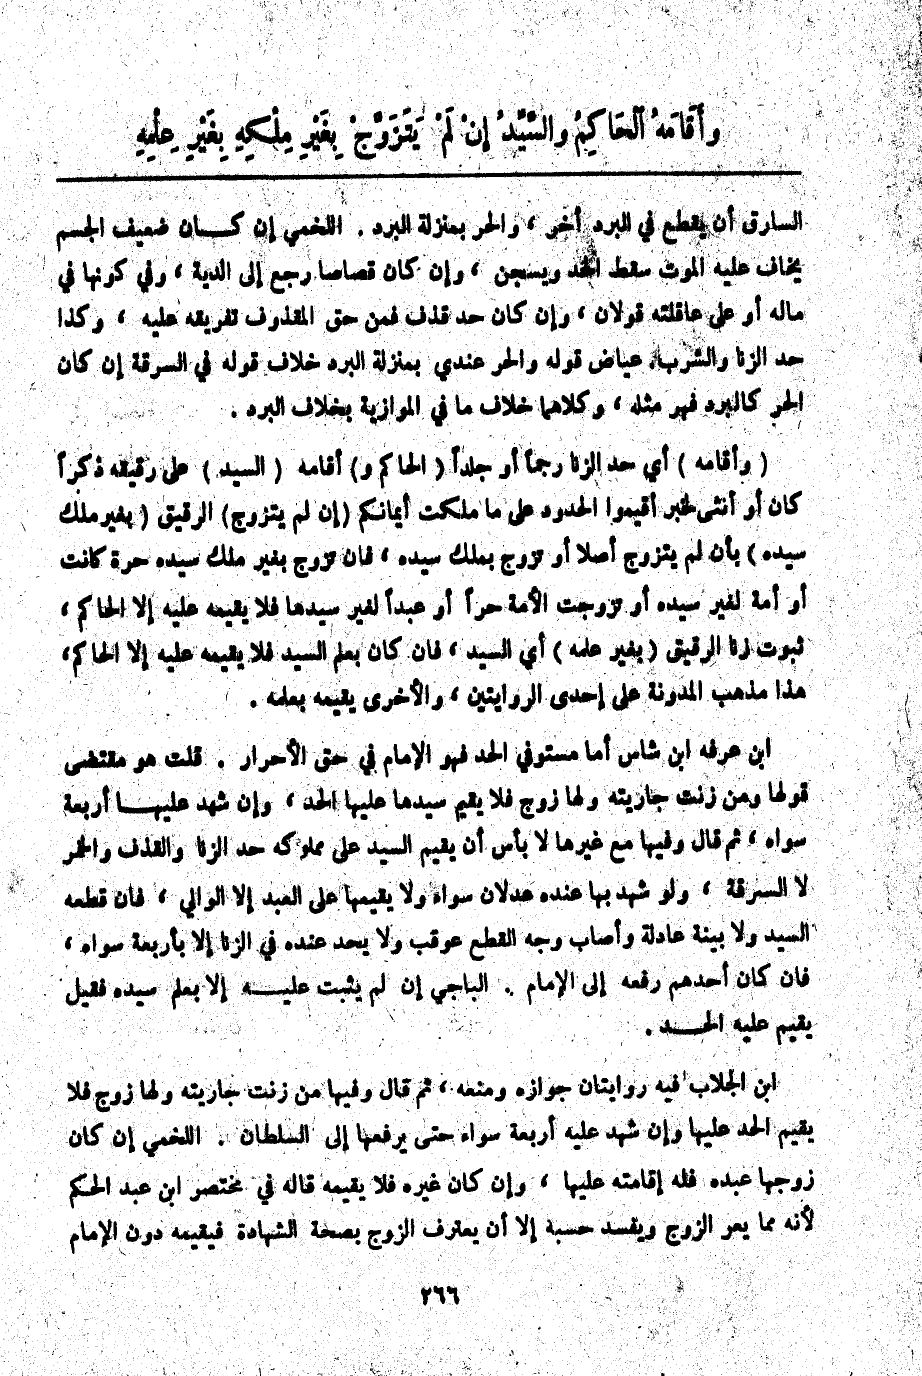 وأَقَامَهُ ٱلْحَاكِمُ والسَّيِّدُ إنْ لَمْ يَتَزَوَّجْ بِغَيْرِ مِلْكِهِ بِغَيْرِ عِلْمِهِ
السارق أن يقطع في البرد أخر ، والحر بمنزلة البرد . اللخمي إن كـــان ضعيف الجسم
يخاف عليه الموت سقط الحد ويسجن ، وإن كان قصاصا رجع إلى الدية ، وفي كونها في
ماله أو على عاقلته قولان ، وإن كان حد قذف فمن حق المقذوف تفريقه عليه ، وكذا
حد الزنا والشرب. عياض قوله والحر عندي بمنزلة البرد خلاف قوله في السرقة إن كان
الحر كالبرد فهر مثله ، وكلاهما خلاف ما في الموازية بخلاف البرد .
( وأقامه ) أي حد الزنا رجماً أو جلداً ( الحاكم و) أقامه ( السيد ) على رقيقه ذكراً
كان أو أنثى لخبر أقيموا الحدود على ما ملكت أيمانكم (إن لم يتزوج) الرقيق ( بغير ملك
سيده ) بأن لم يتزوج أصلا أو تزوج بملك سيده ، فان تزوج بغير ملك سيده حرة كانت
أو أمة لغير سيده أو تزوجت الأمة حراً أو عبداً لغير سيدها فلا يقيمه عليه إلا الحاكم ،
ثبوت زنا الرقيق ( بغير علمه ) أي السيد ، فان كان بعلم السيد فلا يقيمه عليه إلا الحاكم،
هذا مذهب المدونة على إحدى الروايتين ، والأخرى يقيمه بعلمه .
ابن عرفه ابن شاس أما مستوفي الحد فهو الإمام في حق الأحرار . قلت هو مقتضى
قولها ومن زنت جاريته ولها زوج فلا يقيم سيدها عليها الحد ، وإن شهد عليهـــا أربعة
سواه ، ثم قال وفيها مع غيرها لا بأس أن يقيم السيد على مملوكه حد الزنا والقذف والخمر
لا السرقة ، ولو شهد بها عنده عدلان سواه ولا يقيمها على العبد إلا الوالي ، فان قطعه
السيد ولا بينة عادلة وأصاب وجه القطع عوقب ولا يحد عنده في الزنا إلا بأربعة سواه ،
فان كان أحدهم رفعه إلى الإمام . الباجي إن لم يثبت عليـــه إلا بعلم سيده فقيل
يقيم عليه الحـــد .
ابن الجلاب فيه روايتان جوازه ومنعه ، ثم قال وفيها من زنت جاريته ولها زوج فلا
يقيم الحد عليها وإن شهد عليه أربعة سواء حتى يرفعها إلى السلطان . اللخمي إن كان
زوجها عبده فله إقامته عليها ، وإن كان غيره فلا يقيمه قاله في مختصر ابن عبد الحكم
لأنه مما يعر الزوج ويفسد حسبة إلا أن يعترف الزوج بصحة الشهادة فيقيمه دون الإمام
٢٦٦